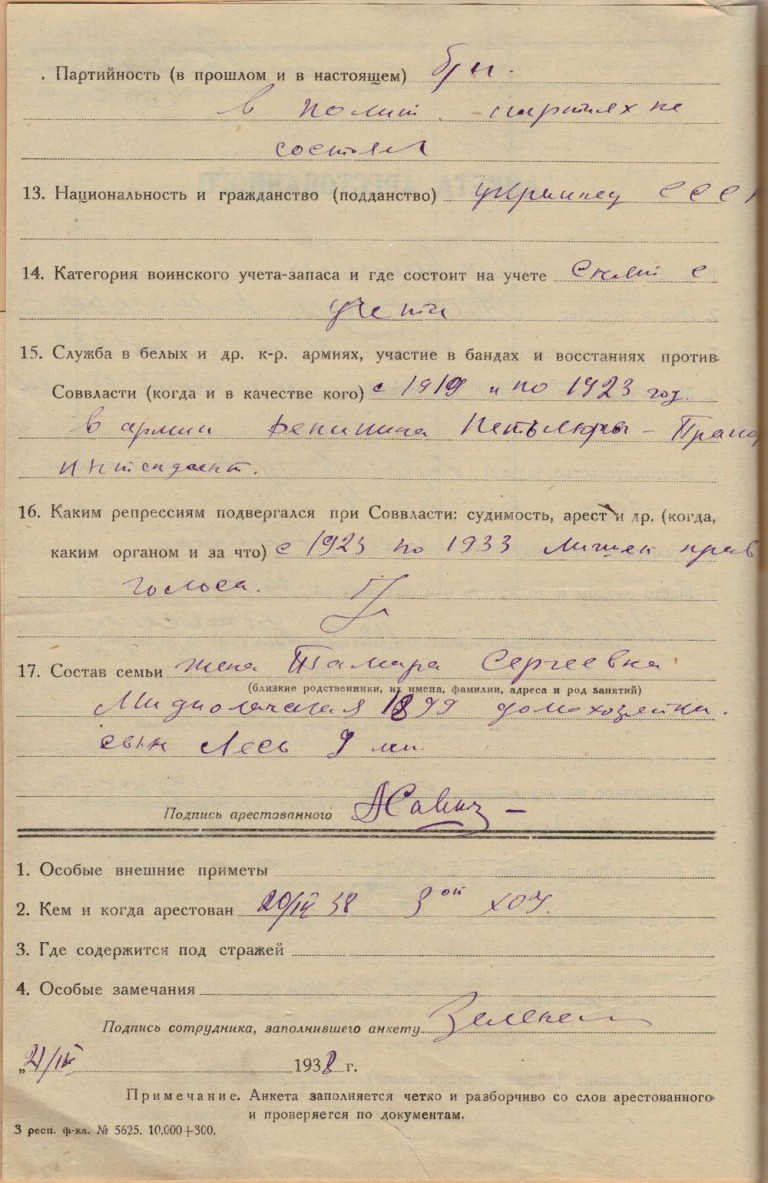 . Партийность (в прошлом и в настоящем) б/п.
в полит. партиях не
состоял
13. Национальность и гражданство (подданство) украинец СССР
14. Категория воинского учета-запаса и где состоит на учете снят с
учета
15. Служба в белых и др. к-р. армиях, участие в бандах и восстаниях против
Соввласти (когда и в качестве кого) с 1919 и по 1923 год.
в армии Деникина Петлюры –
интендант.
16. Каким репрессиям подвергался при Соввласти: судимость, арест и др. (когда,
каким органом и за что) с 1923 по 1933 лишен прав
голоса.
17. Состав семьи жена Тамара Сергеевна
(близкие родственники, их имена, фамилии, адреса и род занятий)
1899 домохозяйка.
сын Лесь 9 л.
Подпись арестованного
1. Особые внешние приметы
2. Кем и когда арестован 20/III 38 3ой
3. Где содержится под стражей
4. Особые замечания
Подпись сотрудника, заполнившего анкету
„21/III 1938 г.
Примечание. Анкета заполняется четко и разборчиво со слов арестованного
и проверяется по документам.
3 респ. ф-ка. № 5625. 10.000+300.